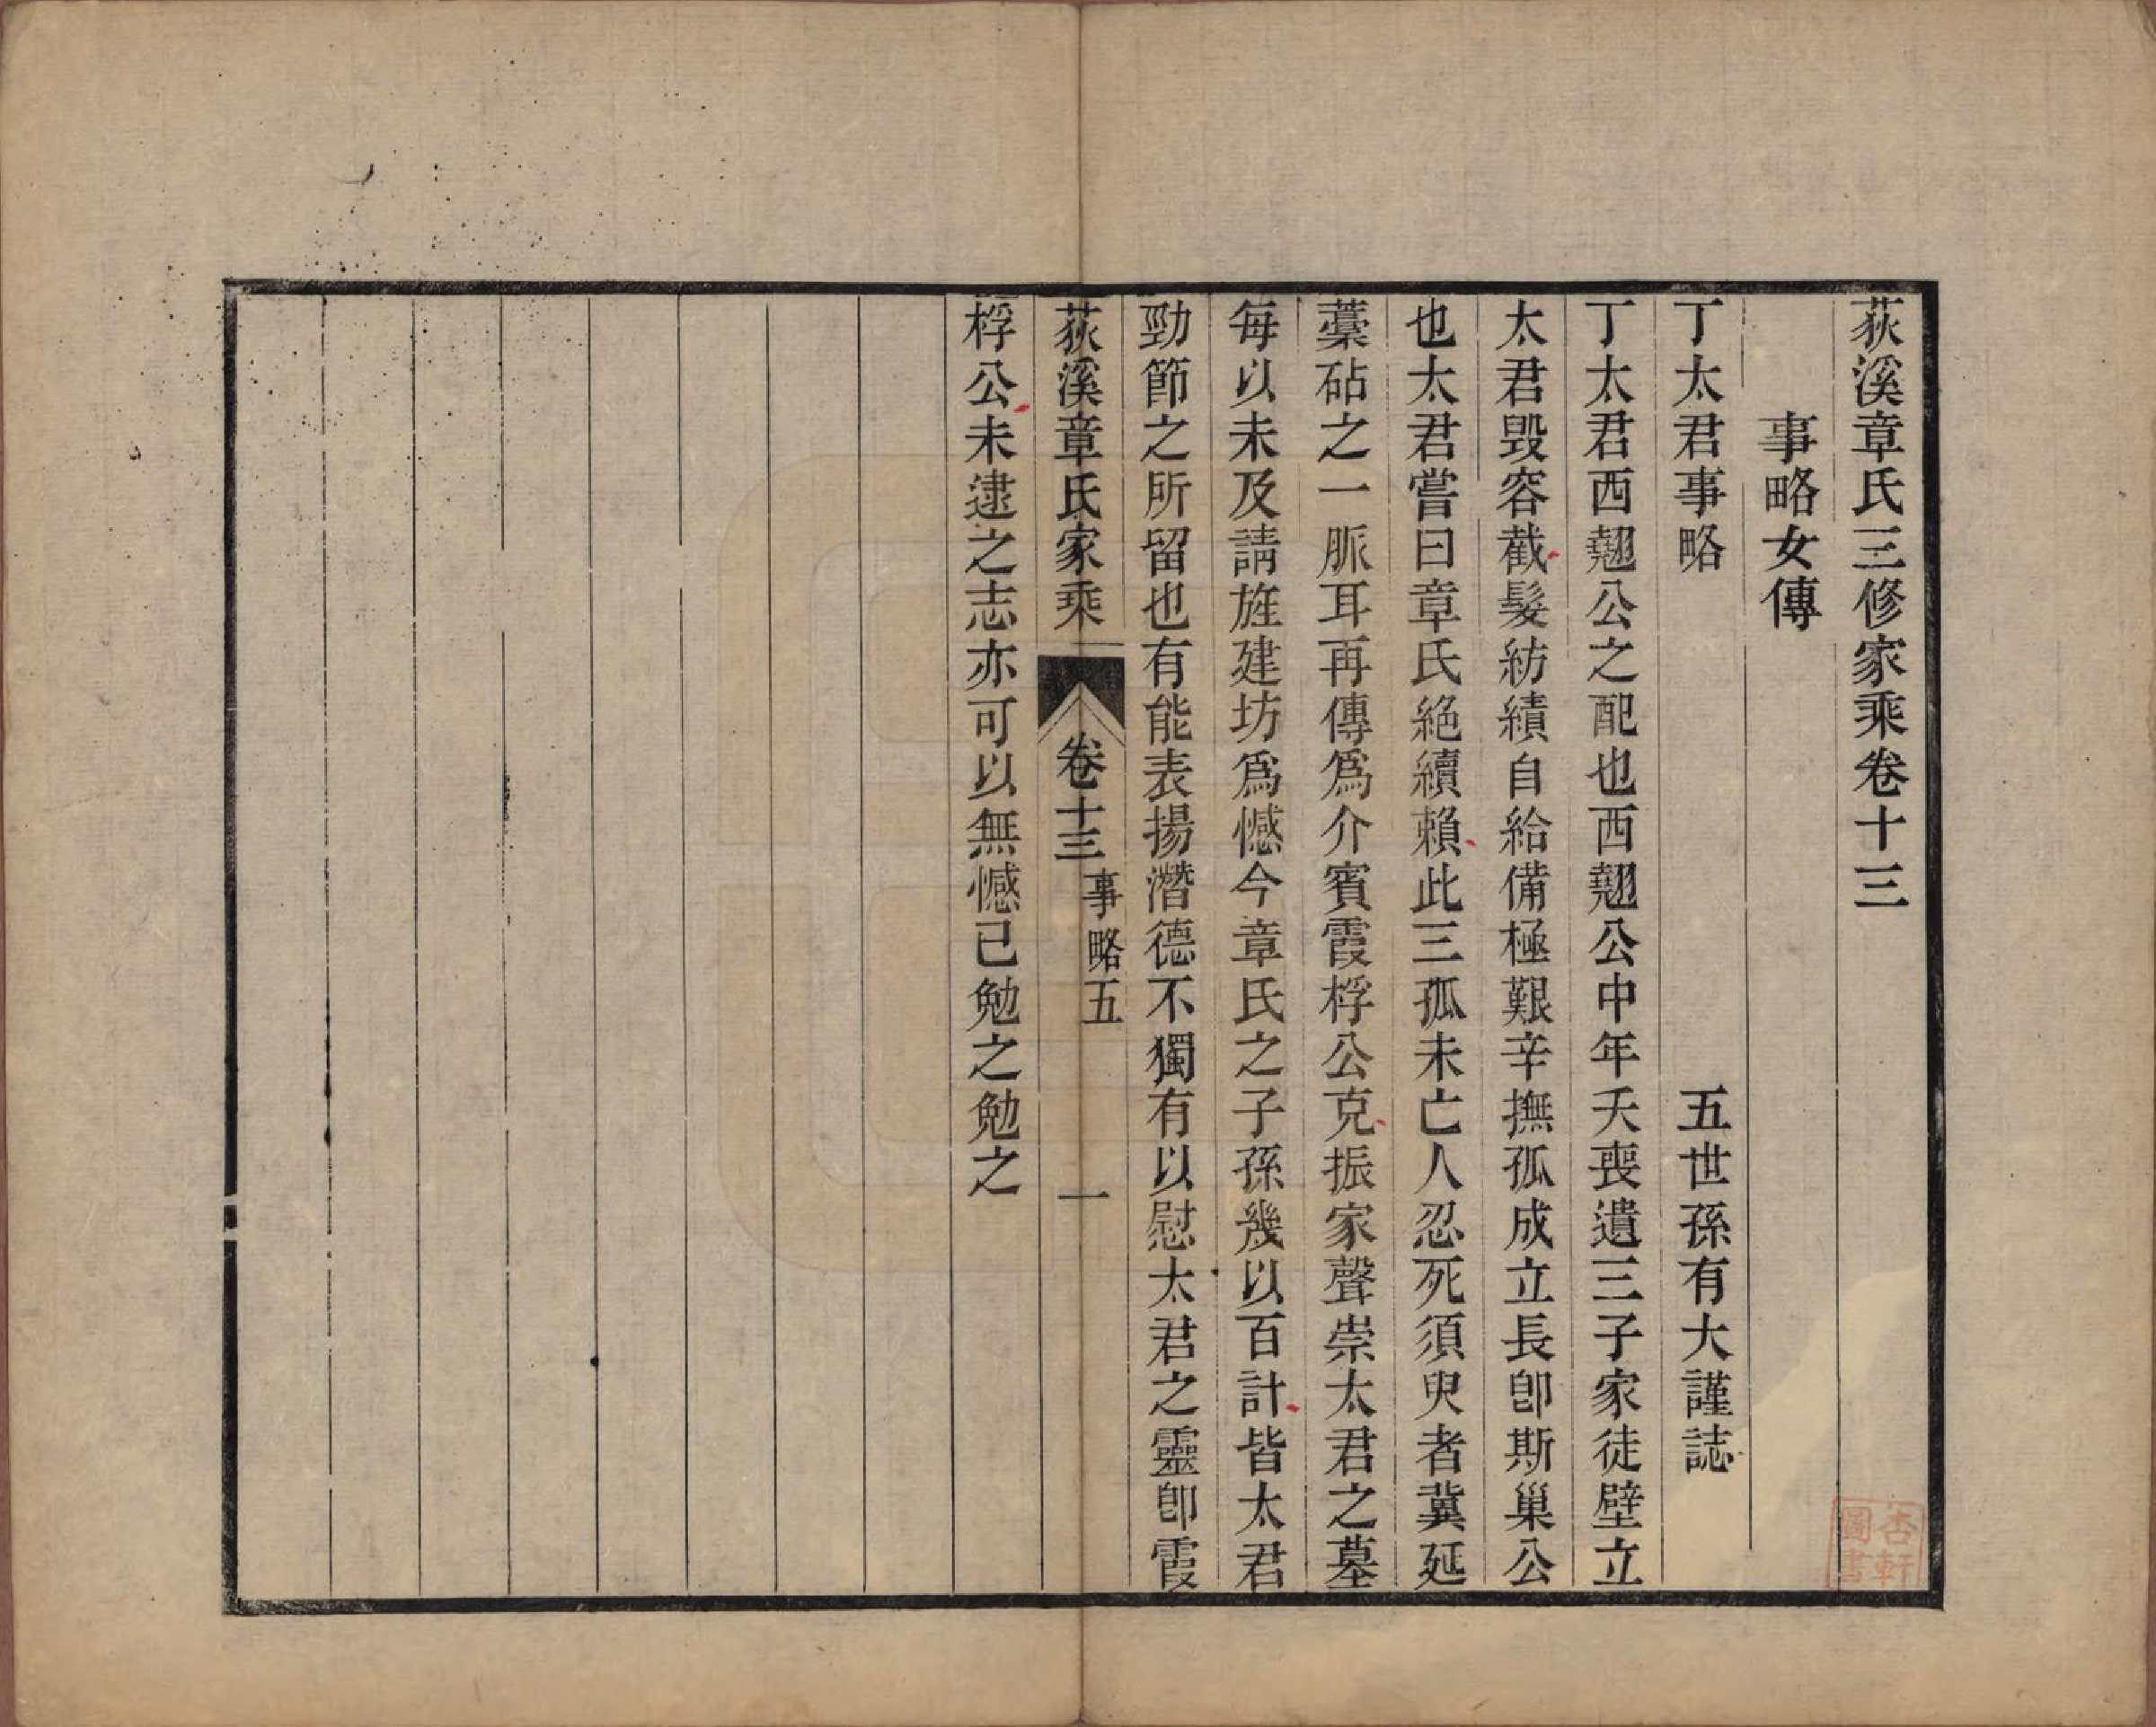 荻溪章氏三修家乘卷十三
事略女傳
丁太君事略　五世孫有大謹誌
丁太君西翹公之配也西翹公中年夭喪遺三子家徒壁立
太君毀容截髮紡績自給備極艱辛撫孤成立長卽斯巢公
也太君嘗曰章氏絕續賴此三孤未亡人忍死須臾者冀延
藁砧之一脈耳再傳爲介賓霞桴公克振家聲崇太君之墓
每以未及請旌建坊爲憾今章氏之子孫幾以百計皆太君
勁節之所留也有能表揚潛德不獨有以慰太君之靈卽霞
荻溪章氏家乘　卷十三　事略五　一
桴公未逮之志亦可以無憾已勉之勉之
杏軒圖書